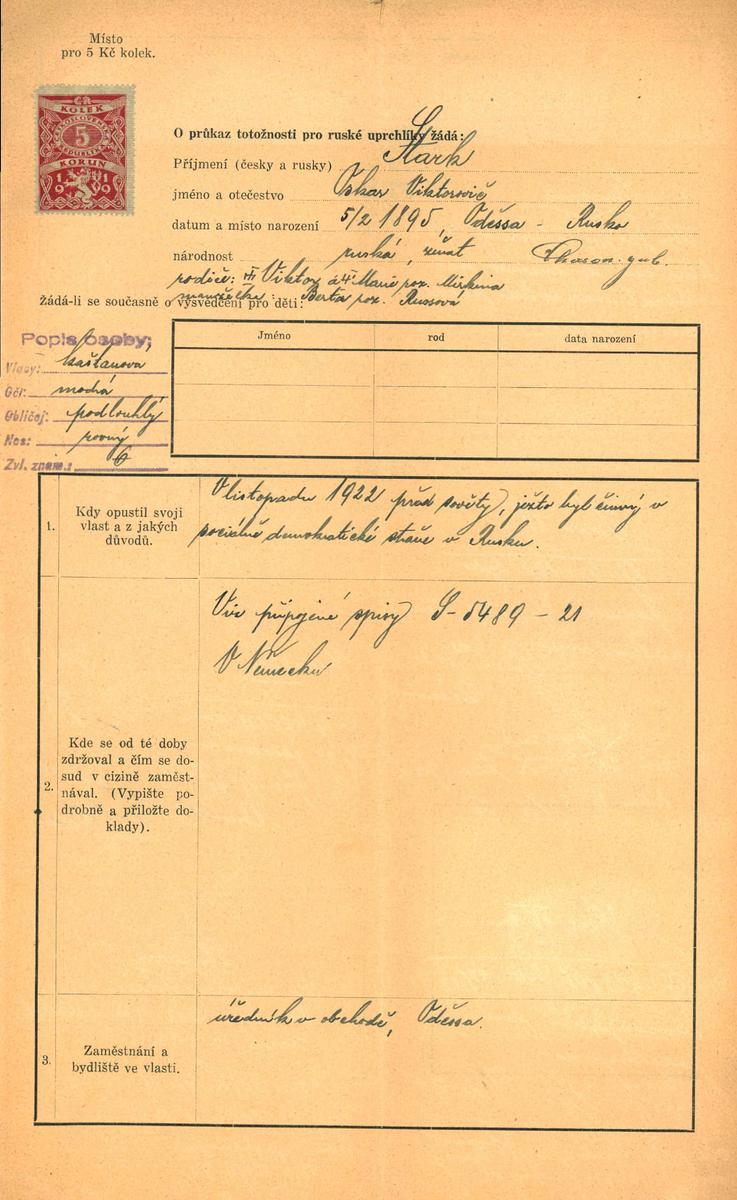 Místo
pro 5 Kč kolek.
ČR
KOLEK
ČESKOSLOVENSKÁ
5
REPUBLIKA
KORUN
1919
O průkaz totožnosti pro ruské uprchlíky žádá:
Příjmení (česky a rusky) Stark
jméno a otečestvo Oskar Viktorovič
datum a místo narození 5/2 1895, Oděssa - Rusko
národnost ruská, ženat Choson. gub.
rodiče: Viktor a Marie roz. Mirkina
manželka: Berta roz. Russová
Žádá-li se současně o vysvědčení pro děti:
Jméno rod data narození
Popis osoby:
Vlasy: kaštanová
Oči: modrá
Obličej: podlouhlý
Nos: rovný
Zvl. znam.:
1. Kdy opustil svoji
vlast a z jakých
důvodů.
V listopadu 1922 před sověty, ježto byl činný v
sociálně demokratické straně v Rusku.
Viz připojené spisy S-5489-21
V Německu
2. Kde se od té doby
zdržoval a čím se do-
sud v cizině zaměst-
nával. (Vypište po-
drobně a přiložte do-
klady).
úředník v obchodě, Oděssa.
3. Zaměstnání a
bydliště ve vlasti.